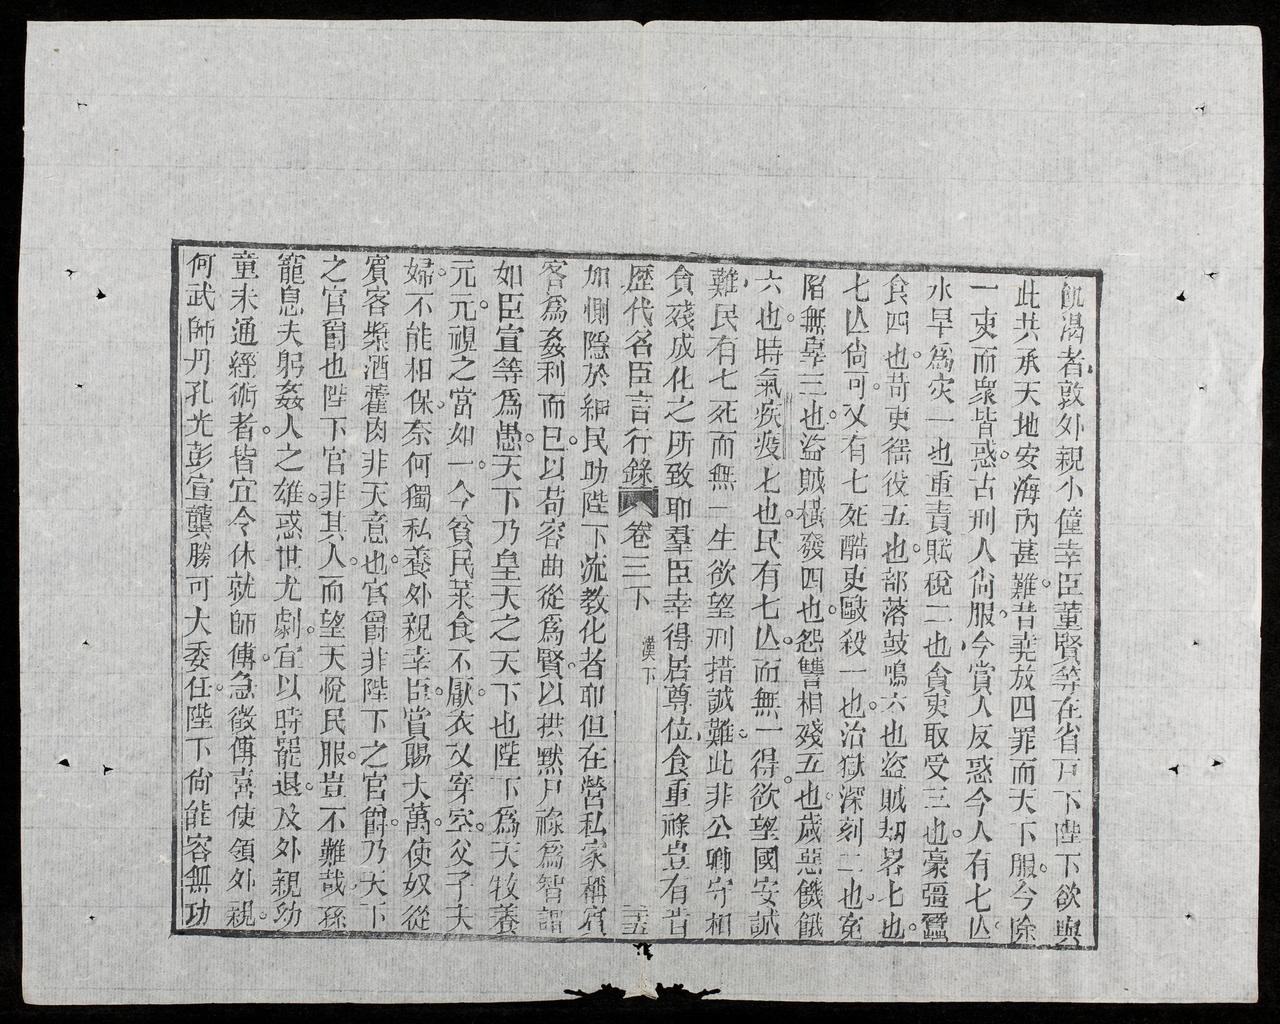 飢渴者敦外親小僮幸臣董賢等在省戶下陛下欲與
此共承天地安海內甚難。昔堯放四罪而天下服。今除
一吏而衆皆惑。古刑人尙服。今賞人反惑今人有七亾。
水旱為灾一也重責賦稅二也貪吏取受三也。豪彊蠶
食四也。苛吏徭役五也。部落鼓鳴六也盜賊刼畧七也。
七亾尙可。又有七死酷吏毆殺一也。治獄深刻二也。寃
陷無辜三也。盜賊橫發四也。怨讐相殘五也。歲惡饑餓
六也。時氣疾疫七也。民有七亾。而無一得。欲望國安誠
難民有七死而無一生欲望刑措誠難。此非公卿守相
貪殘成化之所致耶羣臣幸得居尊位食重祿豈有肯
歷代名臣言行錄 卷三下 漢下
加惻隱於細民助陛下流教化者耶但在營私家稱賓
客爲姦利而已。以苟容曲從爲賢。以拱默尸祿爲智謂
如臣宣等爲愚。天下乃皇天之天下也陛下爲天牧養
元元。視之當如一。今貧民菜食不厭。衣又穿空。父子夫
婦。不能相保。奈何獨私養外親幸臣。賞賜大萬。使奴從
賓客漿酒藿肉非天意也。官爵非陛下之官爵。乃天下
之官爵也陛下官非其人。而望天悅民服。豈不難哉。孫
寵息夫躬姦人之雄。惑世尤劇。宜以時罷退。及外親幼
童未通經術者。皆宜令休就師傅。急徵傅喜使領外親。
何武師丹孔光彭宣龔勝可大委任。陛下尙能容無功